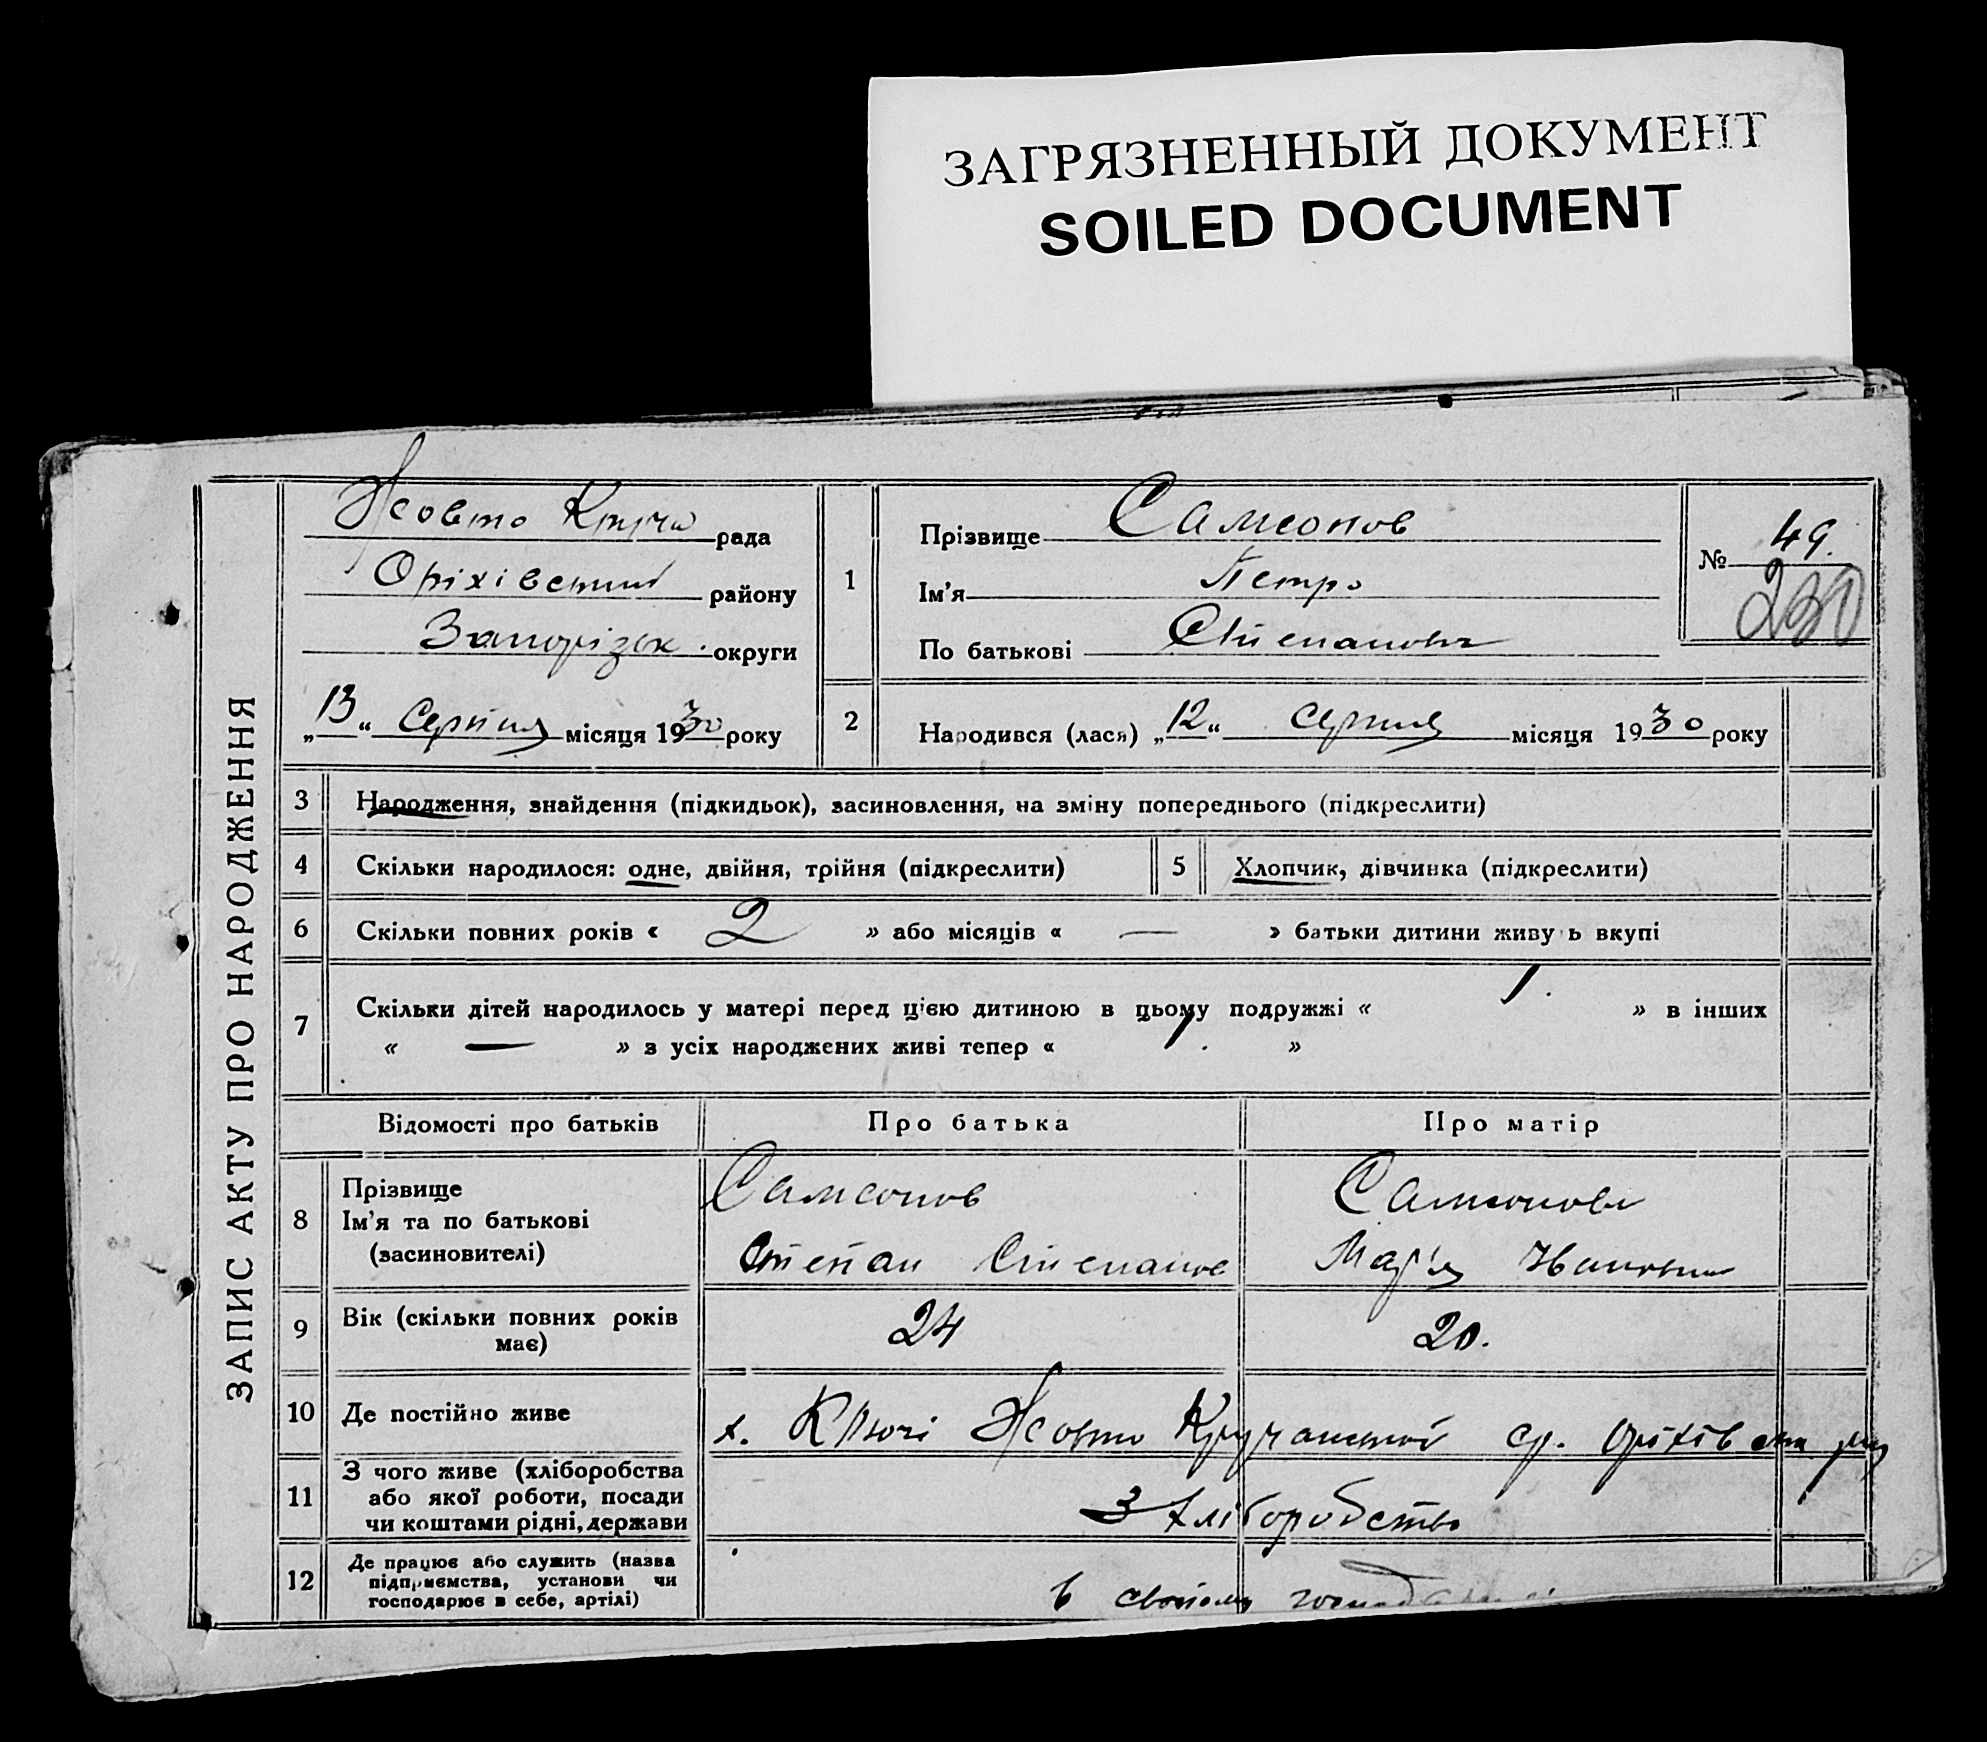 ЗАГРЯЗНЕННЫЙ ДОКУМЕНТ
SOILED DOCUMENT
ЗАПИС АКТУ ПРО НАРОДЖЕННЯ
Жовто Круча рада
Оріхівський району
Запорізьк. округи
„13“ Серпня місяця 1930 року
1
Прізвище Самсонов
Ім'я Петро
По батькові Степанович
№ 49.
230
2 Народився (лася) „12“ серпня місяця 1930 року
3 Народження, знайдення (підкидьок), засиновлення, на зміну попереднього (підкреслити)
4 Скільки народилося: одне, двійня, трійня (підкреслити) 5 Хлопчик, дівчинка (підкреслити)
6 Скільки повних років « 2 » або місяців « — » батьки дитини живуть вкупі
7 Скільки дітей народилось у матері перед цією дитиною в цьому подружжі « 1. » в інших
« — » з усіх народжених живі тепер « 1. »
Відомості про батьків Про батька Про матір
8 Прізвище Самсонов Самсонова
Ім'я та по батькові
(засиновителі) Степан Степанов Мар'я Ивановна
9 Вік (скільки повних років
має) 24 20.
10 Де постійно живе х. Ключі Жовто Кручанської ср. Оріхівськ
11 З чого живе (хліборобства
або якої роботи, посади
чи коштами рідні, держави З хліборобства
12 Де працює або служить (назва
підприємства, установи чи
господарює в себе, артілі) в своїому